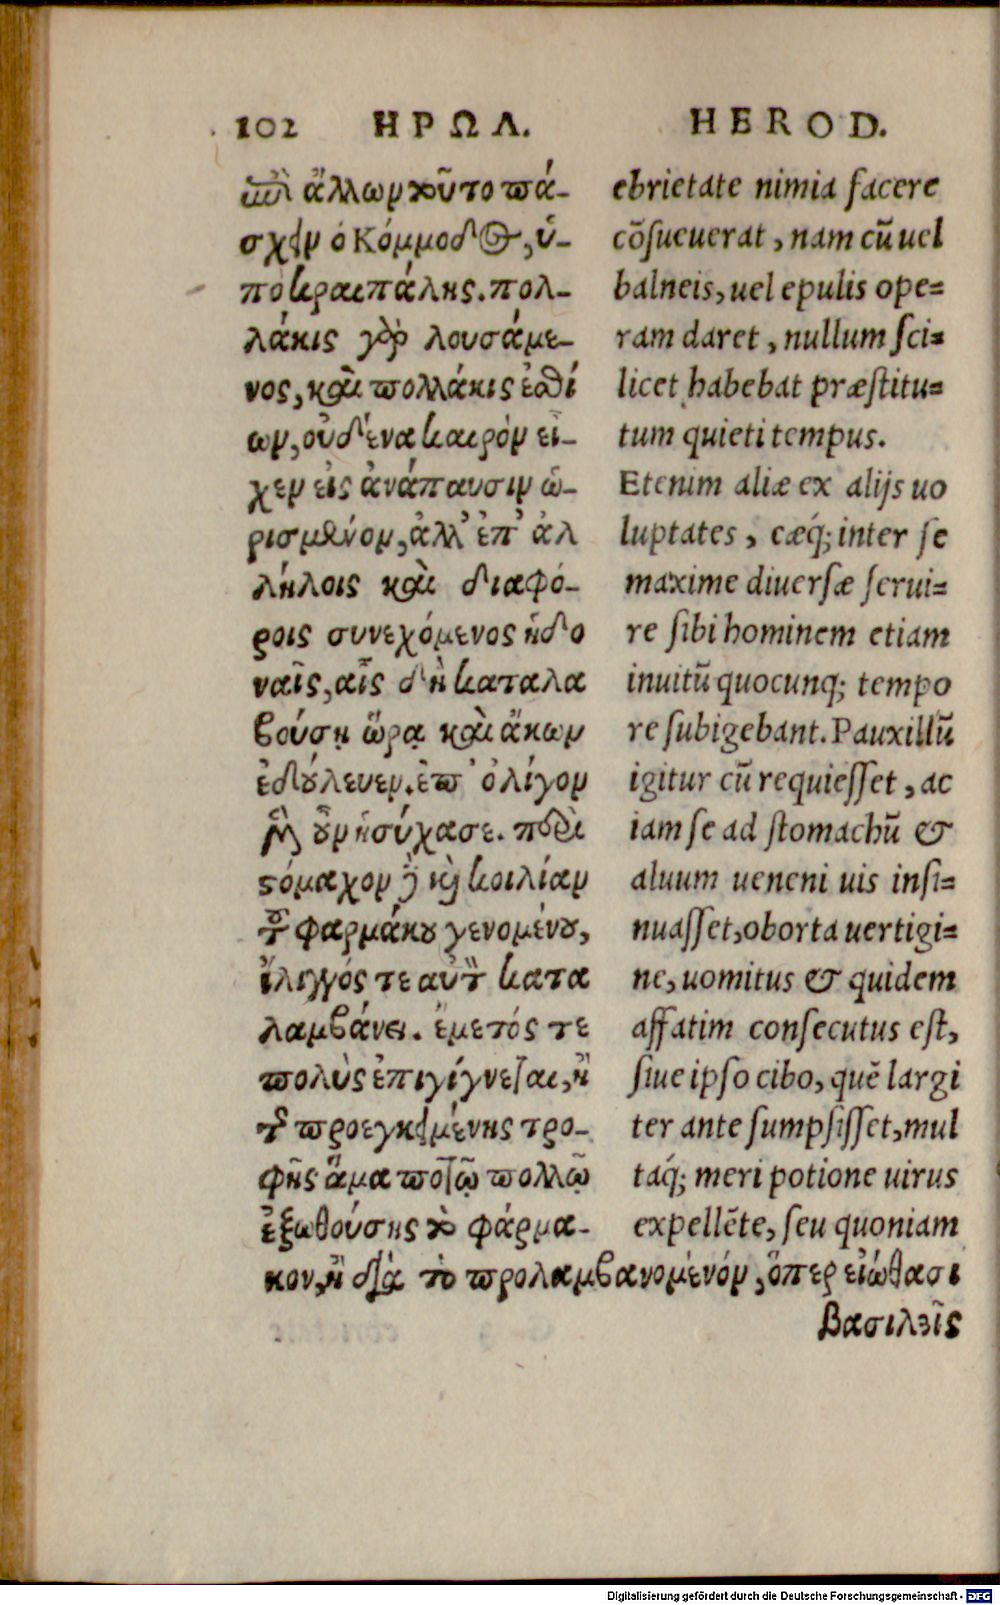 102 ΗΡΩΔ.
ὑπὸ ἄλλων τοῦτο πά-
σχειν ὁ Κόμμοδος, ὑ-
πὸ κραιπάλης. πολ-
λάκις γὰρ λουσάμε-
νος, καὶ πολλάκις ἐσθί
ων, οὐδένα καιρὸν εἶ-
χεν εἰς ἀνάπαυσιν ὡ-
ρισμένον, ἀλλ' ἐπ' ἀλ
λήλοις καὶ διαφό-
ροις συνεχόμενος ἡδο
ναῖς, αἷς δὴ καταλα
βούσῃ ὥρᾳ καὶ ἄκων
ἐδούλευεν. ἐπ' ὀλίγον
μὲν οὖν ἡσύχασε. περὶ
στόμαχον δὲ καὶ κοιλίαν
τοῦ φαρμάκου γενομένου,
ἴλιγγός τε αὐτὸν κατα
λαμβάνει. ἔμετός τε
πολὺς ἐπιγίγνεται, ἢ
τῆς προεγκειμένης τρο-
φῆς ἅμα ποτῷ πολλῷ
ἐξωθούσης τὸ φάρμα-
κον, ἢ διὰ τὸ προλαμβανομένον, ὅπερ εἰώθασι
βασιλεῖς
HEROD.
ebrietate nimia facere
cõsueuerat, nam cũ uel
balneis, uel epulis ope=
ram daret, nullum sci=
licet habebat præstitu=
tum quieti tempus.
Etenim aliæ ex alijs uo
luptates, cæq́; inter se
maxime diuersæ serui=
re sibi hominem etiam
inuitũ quocunq; tempo
re subigebant. Pauxillũ
igitur cũ requiesset, ac
iam se ad stomachũ &
aluum ueneni uis insi=
nuasset, oborta uertigi=
ne, uomitus & quidem
affatim consecutus est,
siue ipso cibo, quẽ largi
ter ante sumpsisset, mul
taq́; meri potione uirus
expellẽte, seu quoniam
Digitalisierung gefördert durch die Deutsche Forschungsgemeinschaft - DFG